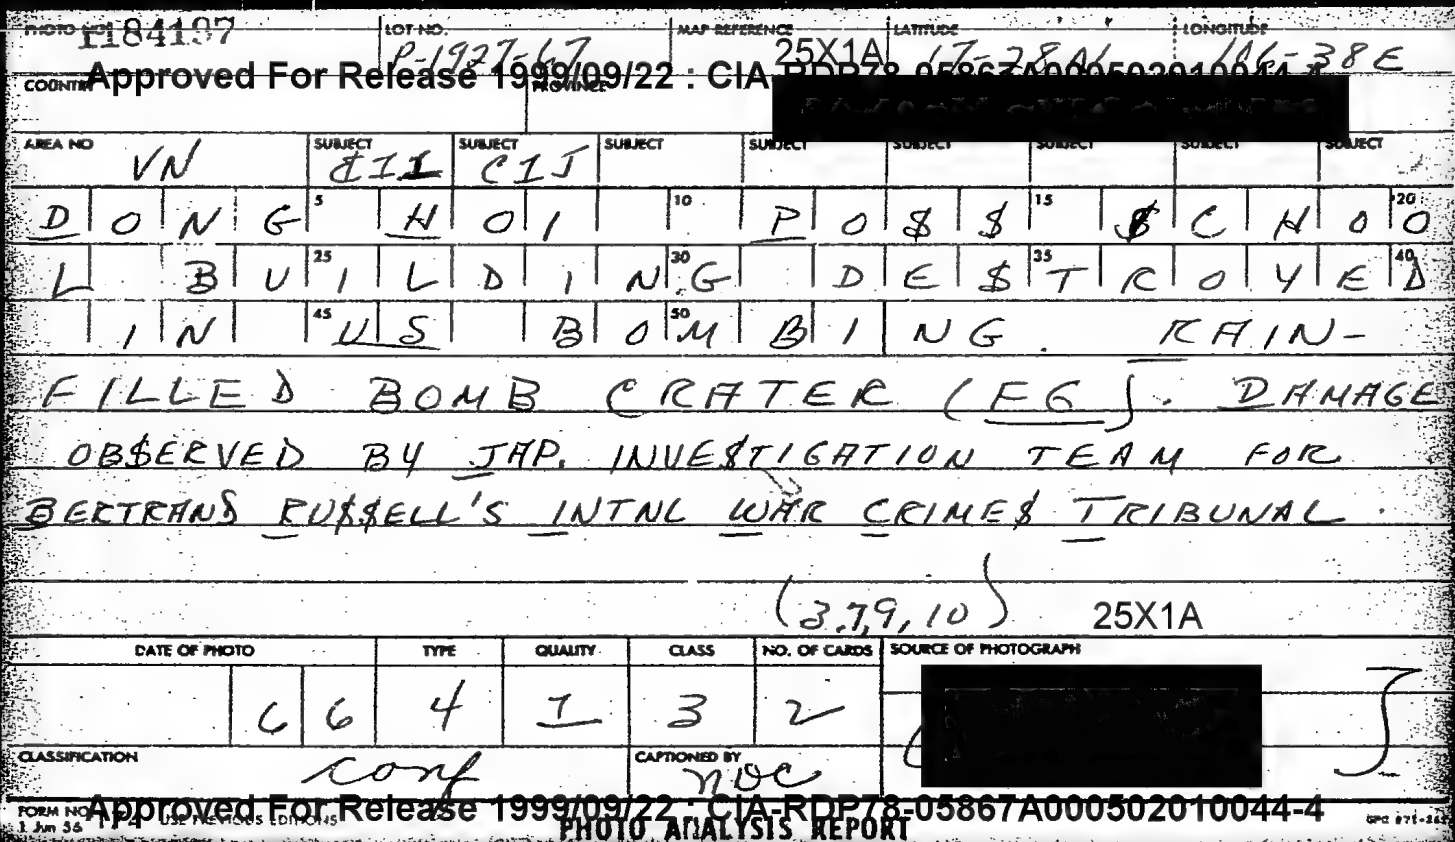 PHOTO NO. 1184197 LOT NO. P-1927-67 MAP REFERENCE 25X1A LATITUDE 17-28N LONGITUDE 106-38E
Approved For Release 1999/09/22 : CIA-RDP78-05867A000502010044-4
COUNTRY PROVINCE
AREA NO VN SUBJECT CII SUBJECT CIJ SUBJECT SUBJECT SUBJECT SUBJECT SUBJECT SUBJECT
DONG 5 HOI 10 PO$$ 15 $CHO 20 O
L BU 25 ILDIN 30 G DE$ 35 TROYE 40 D
IN 45 US BO 50 MBING. RAIN-
FILLED BOMB CRATER (FG). DAMAGE
OB$ERVED BY JAP. INVE$TIGATION TEAM FOR
BERTRAND RU$$ELL'S INTNL WAR CRIME$ TRIBUNAL.
(3,7,9,10) 25X1A
DATE OF PHOTO TYPE QUALITY CLASS NO. OF CARDS SOURCE OF PHOTOGRAPH
66 4 1 3 2
CLASSIFICATION conf CAPTIONED BY noc
FORM NO. 1 Jun 56 USE PREVIOUS EDITIONS
Approved For Release 1999/09/22 : CIA-RDP78-05867A000502010044-4
PHOTO ANALYSIS REPORT